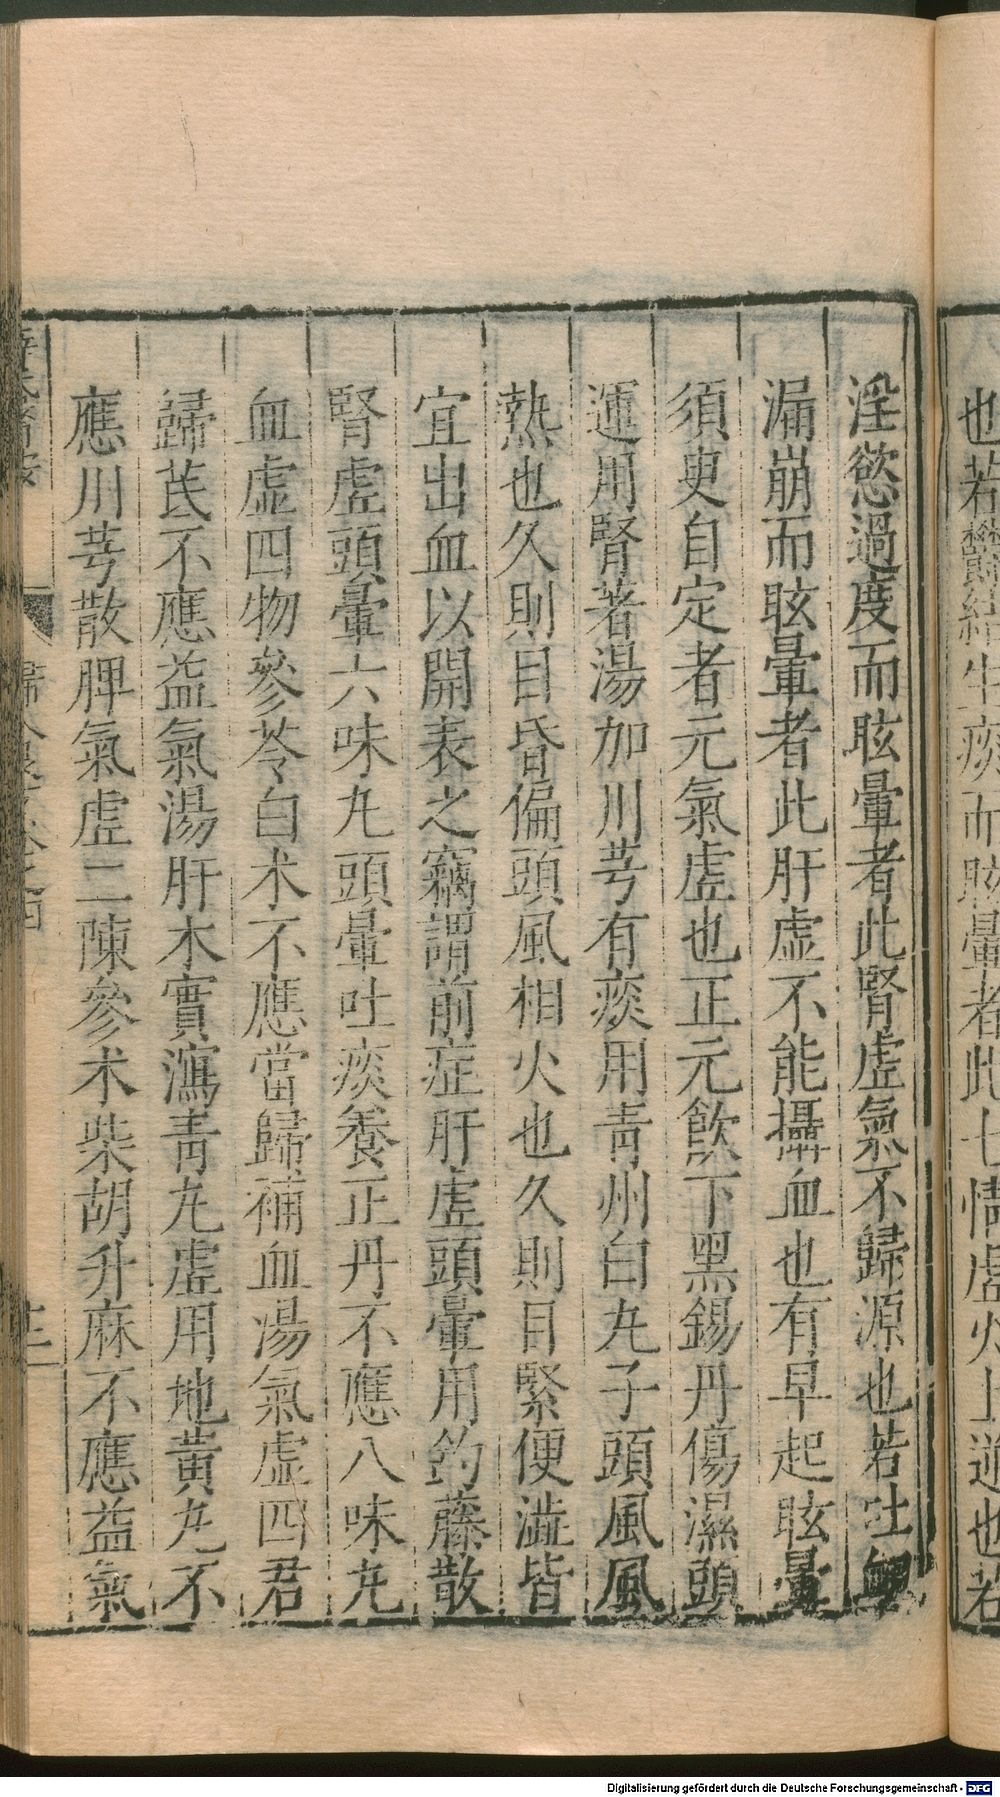 也若鬱結生痰而眩暈者此七情虛火上逆也若
淫慾過度而眩暈者此腎虛氣不歸源也若吐衄
漏崩而眩暈者此肝虛不能攝血也有早起眩暈
須臾自定者元氣虛也正元飲下黑錫丹傷濕頭
運用腎著湯加川芎有痰用青州白丸子頭風風
熱也久則目昏偏頭風相火也久則目緊便澁皆
宜出血以開表之竊謂前症肝虛頭暈用釣藤散
腎虛頭暈六味丸頭暈吐痰養正丹不應八味丸
血虛四物參苓白术不應當歸補血湯氣虛四君
歸芪不應益氣湯肝木實瀉青丸虛用地黃丸不
應川芎散脾氣虛二陳參术柴胡升麻不應益氣
Digitalisierung gefördert durch die Deutsche Forschungsgemeinschaft - DFG